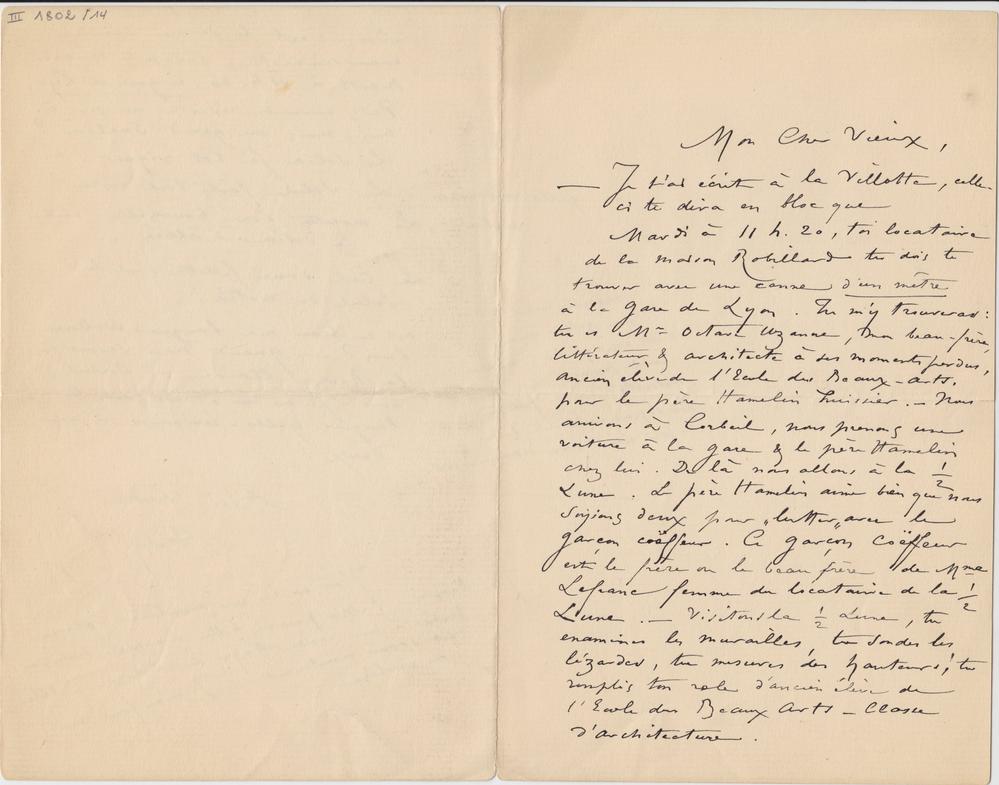 III 1802 / 14
Mon Cher Vieux,
— Je t'ai écrit à la Villotte, celle-
ci te dira en bloc que
Mardi à 11 h. 20, toi locataire
de la maison Robillard tu dois te
trouver avec une canne d'un mètre
à la gare de Lyon. Tu m'y trouveras:
tu es Mr Octave Uzanne, mon beau-frère,
littérateur & architecte à ses moments perdus,
ancien élève de l'Ecole des Beaux-Arts.
pour le père Hamelin huissier. — Nous
arrivons à Corbeil, nous prenons une
voiture à la gare & le père Hamelin
chez lui. De là nous allons à la 1/2
Lune. Le père Hamelin aime bien que nous
soyions deux pour "lutter" avec le
garçon coëffeur. Ce garçon coëffeur
est le frère ou le beau frère de Mme
Lefranc femme du locataire de la 1/2
Lune. — Visitons la 1/2 Lune, tu
examines les murailles, tu sondes les
lézardes, tu mesures des hauteurs, tu
remplis ton role d'ancien élève de
l'Ecole des Beaux Arts — Classe
d'architecture.